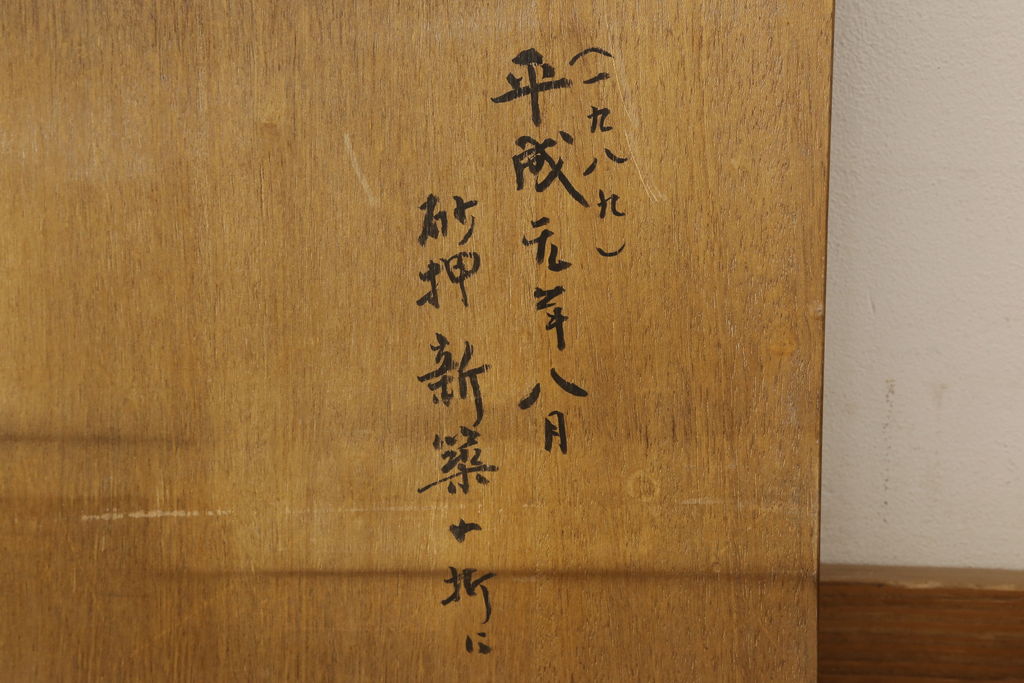 (一九八九)
平成元年八月
砂押新築十折に